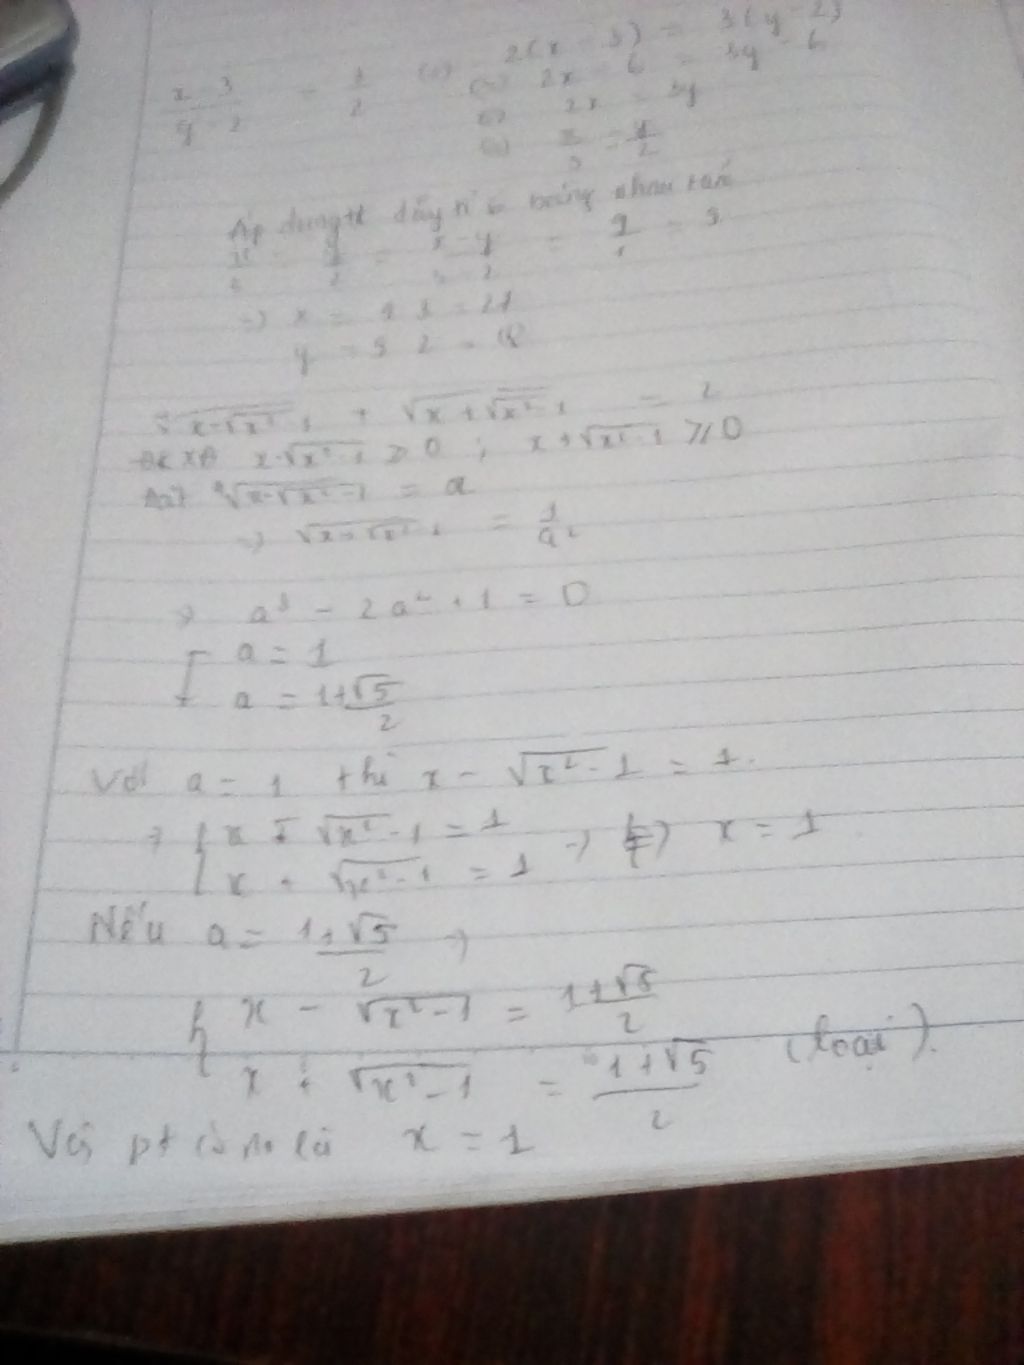 2(x - 3) = 3(y - 2)
x - 3 / y - 2 = 3/2 (=) 2x - 6 = 3y - 6
(=) 2x = 3y
(=) x/3 = y/2
Áp dụng tc dãy tỉ số bằng nhau
x/3 = y/2 = x - y / 3 - 2 = 9/1 = 9
=) x = 9.3 = 27
y = 9.2 = 18
√x-√x²-1 + √x+√x²-1 = 2
ĐKXĐ x-√x²-1 ≥ 0 ; x+√x²-1 ≥ 0
Đặt √x-√x²-1 = a
=) √x+√x²-1 = 1/a²
=> a³ - 2a² + 1 = 0
[ a = 1
a = 1+√5 / 2
Với a = 1 thì x - √x²-1 = 1.
=> { x - √x²-1 = 1
x + √x²-1 = 1 => (=) x = 1
Nếu a = 1+√5 / 2 =>
{ x - √x²-1 = 1+√5 / 2
x + √x²-1 = 1+√5 / 2 (loại).
Vậy pt có no là x = 1